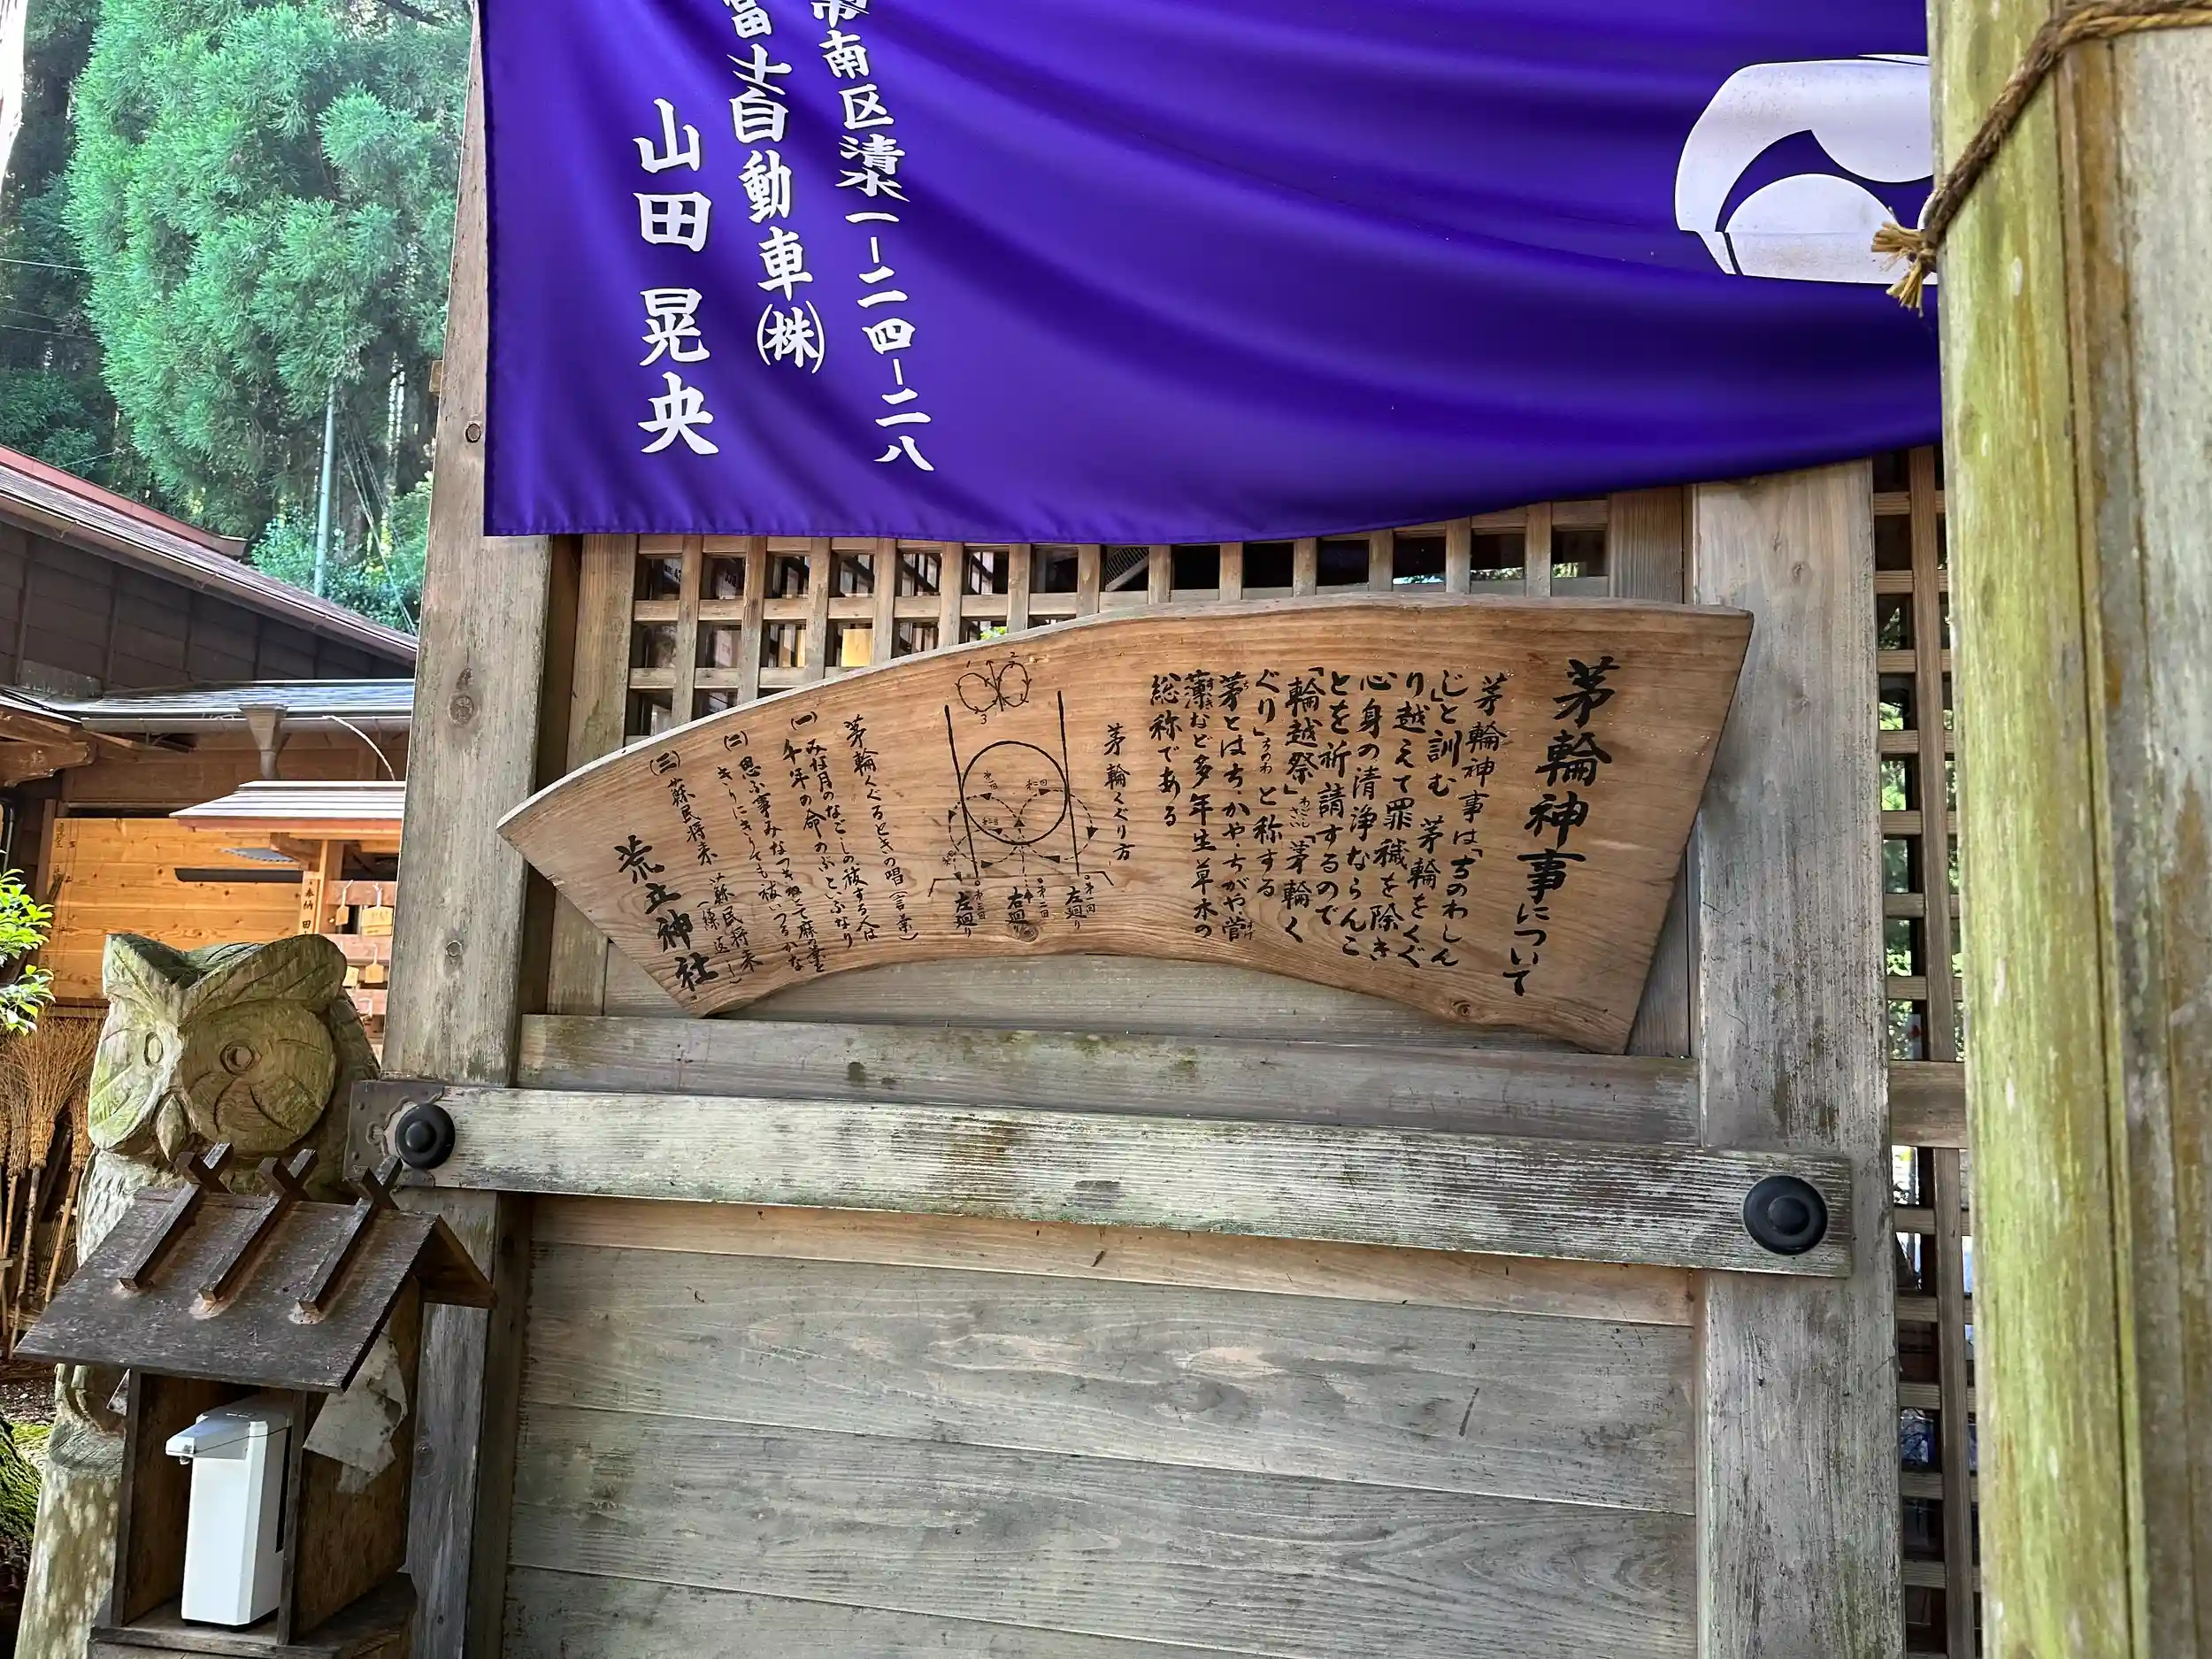 市南区清水一ー二四ー二八
富士自動車㈱
山田晃央
茅輪神事について
茅輪神事は「ちのわしん
じ」と訓む 茅輪をくぐ
り越えて罪穢を除き
心身の清浄ならんこ
とを祈請するので
「輪越祭」「茅輪く
ぐり」と称する
茅とはちかや、ちがや、菅
薄など多年生草木の
総称である
茅輪くぐり方
1
2
3
第一回
左廻り
第二回
右廻り
第三回
左廻り
茅輪くぐるときの唱(言葉)
(一)みな月のなごしの祓する人は
千年の命のぶといふなり
(二)思ふ事みなつきねとて麻の葉を
きりにきりても祓いつるかな
(三)蘇民将来 蘇民将来
(繰返し)
荒立神社